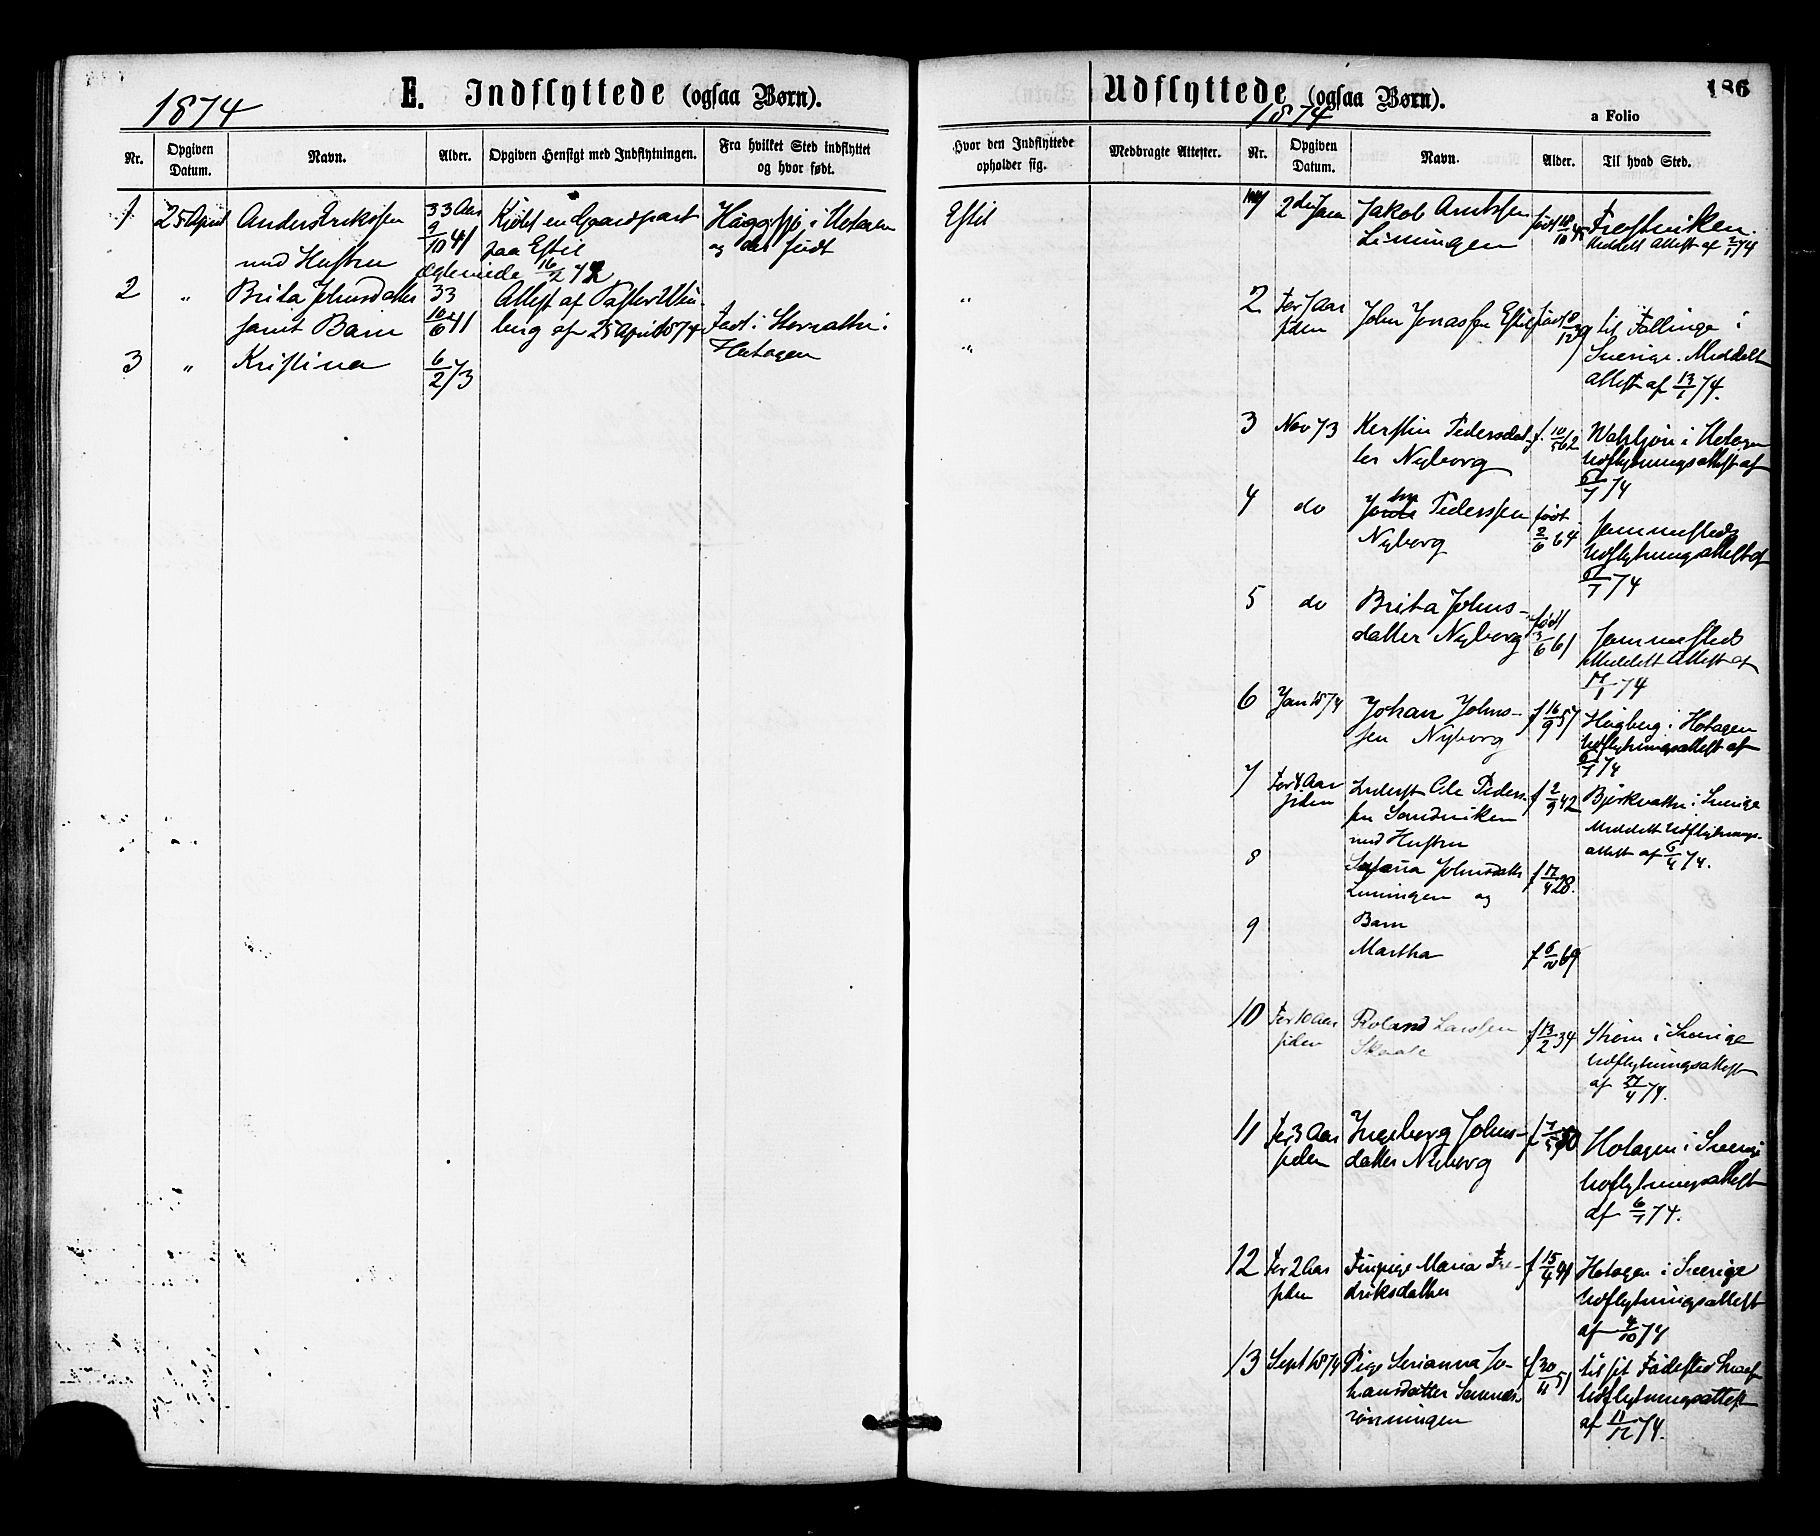 E. Indflyttede (ogsaa Børn).
1874
Nr.
Opgiven
Datum.
Navn.
Alder.
Opgiven Hensigt med Indflytningen.
Fra hvilket Sted indflyttet
og hvor født.
1
25 April
Anders Erikssen
med Hustru
33 Aar
9/10 41
Kjøbt en Gaardpart
paa Estil
16/2 72
i Hotagen
og der født
2
"
Brita Johnsdatter
samt Barn
33
10/6 41
Attest af Pastor
berg af 25 April 1874
Født i
Hotagen
3
"
Kristina
6/2 73
Udflyttede (ogsaa Børn).
1874
186
a Folio
Hvor den Indflyttede
opholder sig.
Medbragte Attester.
Nr.
Opgiven
Datum.
Navn.
Alder.
Til hvad Sted.
Estil
"
"
1
2den Jan
Jakob
Limingen
født
Meddelt Attest af 2/1 74
2
for 7 Aar
siden
John Jonassen Estil
født
til Føllinge i
Sverige. Meddelt
Attest af 13/1 74.
3
Nov 73
Kerstin Pedersdat-
ter Nyborg
f. 10/5 62
i Hotagen
Udflytningsattest af
74
4
do
Pederssen
Nyborg
født
2/6 64
Sammesteds
Udflytningsattest af
74
5
do
Brita Johns-
datter Nyborg
født
3/6 61
Sammesteds
Meddelt Attest af
74
6
Jan 1874
Johan Johns-
sen Nyborg
f 16/9 57
Högberg i Hotagen
Udflytningsattest af
74
7
for 4 Aar
siden
Inderst Ole Peders-
sen Sandviken
med Hustru
f 2/9 42
Bjørkvattn i Sverige
Meddelt Udflytnings-
attest af 6/4 74.
8
Johnsdatter
Limingen og
f 17/4 28.
9
Barn
Martha
f 6/10 69
10
For 10 Aar
siden
Roland Larssen
f 13/2 34
Strøm i Sverige
Udflytningsattest
af 27/4 74.
11
for 3 Aar
siden
Ingeborg Johns-
datter Nyborg
f 7/5 50
Hotagen i Sverige
Udflytningsattest
af 6/1 74.
12
for 2 Aar
siden
Maria Fre-
driksdatter
f 15/4 41
Hotagen i Sverige
Udflytningsattest
af 4/10 74
13
Sept 1874
Pige Serianna Jo-
hansdatter
rønningen
f 30/11 51
til sit Fødested
Udflytningsattest
af 11/12 74.